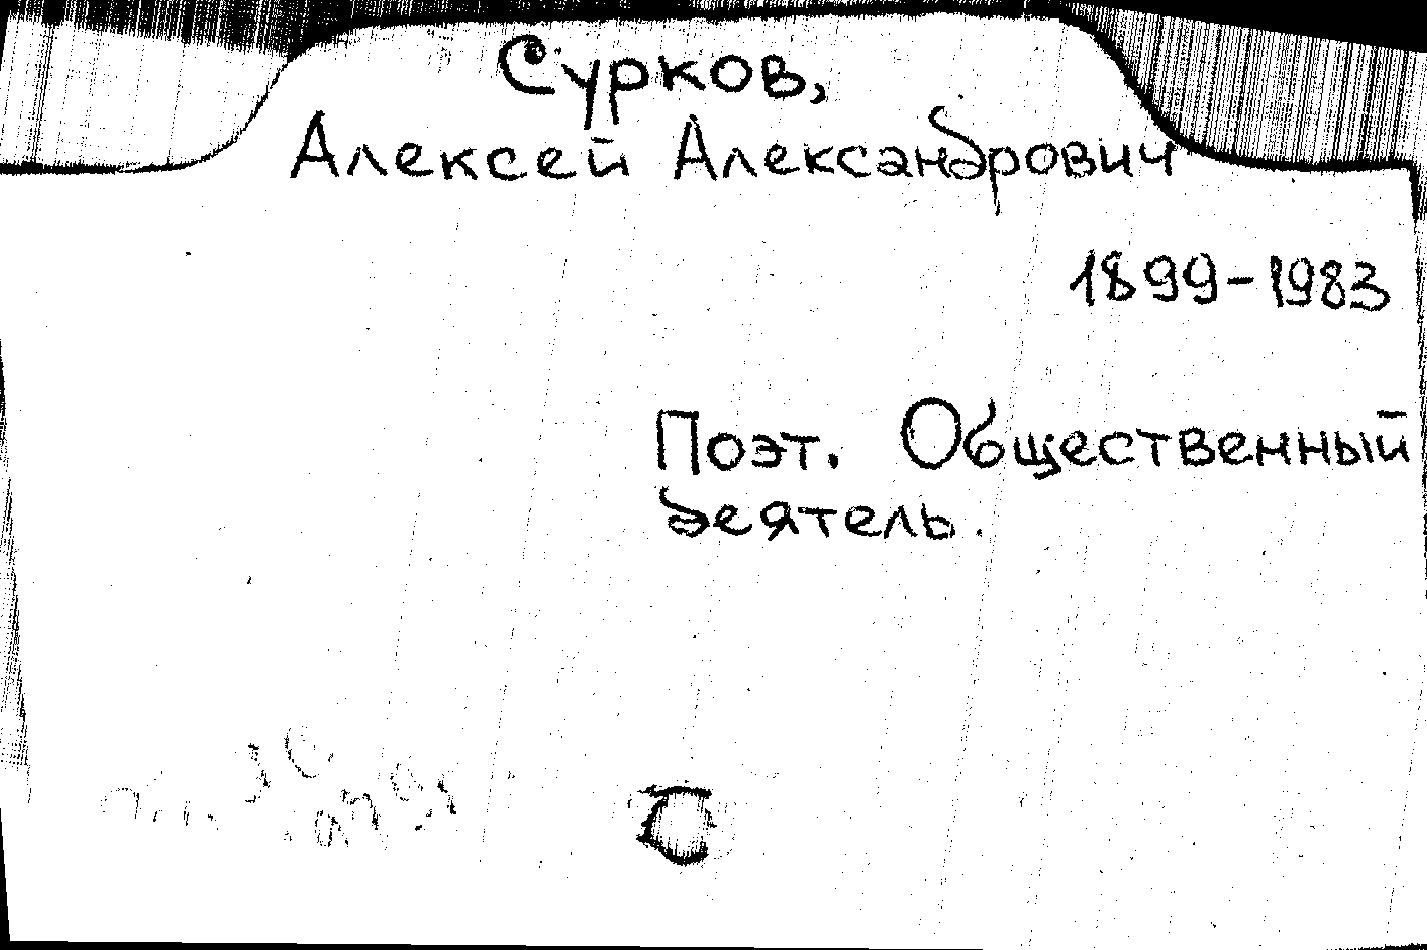 Сурков,
Алексей Александрович
1899-1983
Поэт. Общественный
деятель.